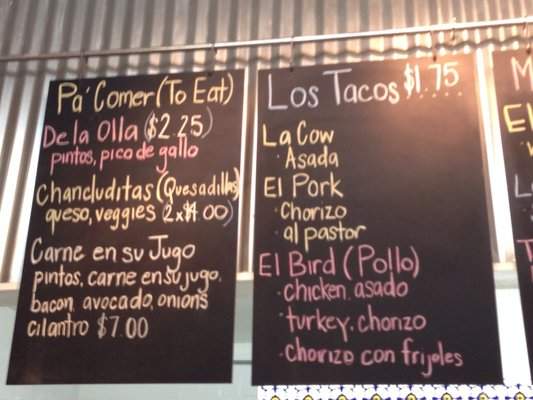 Pa' Comer (To Eat)
De la Olla ($2.25)
pintos, pico de gallo
Chancluditas (Quesadillas)
queso, veggies (2x$4.00)
Carne en su Jugo
pintos, carne en su jugo,
bacon, avocado, onions
cilantro $7.00
Los Tacos $1.75
La Cow
· Asada
El Pork
· Chorizo
· al pastor
El Bird (Pollo)
· chicken asado
· turkey, chorizo
· chorizo con frijoles
M
El
L